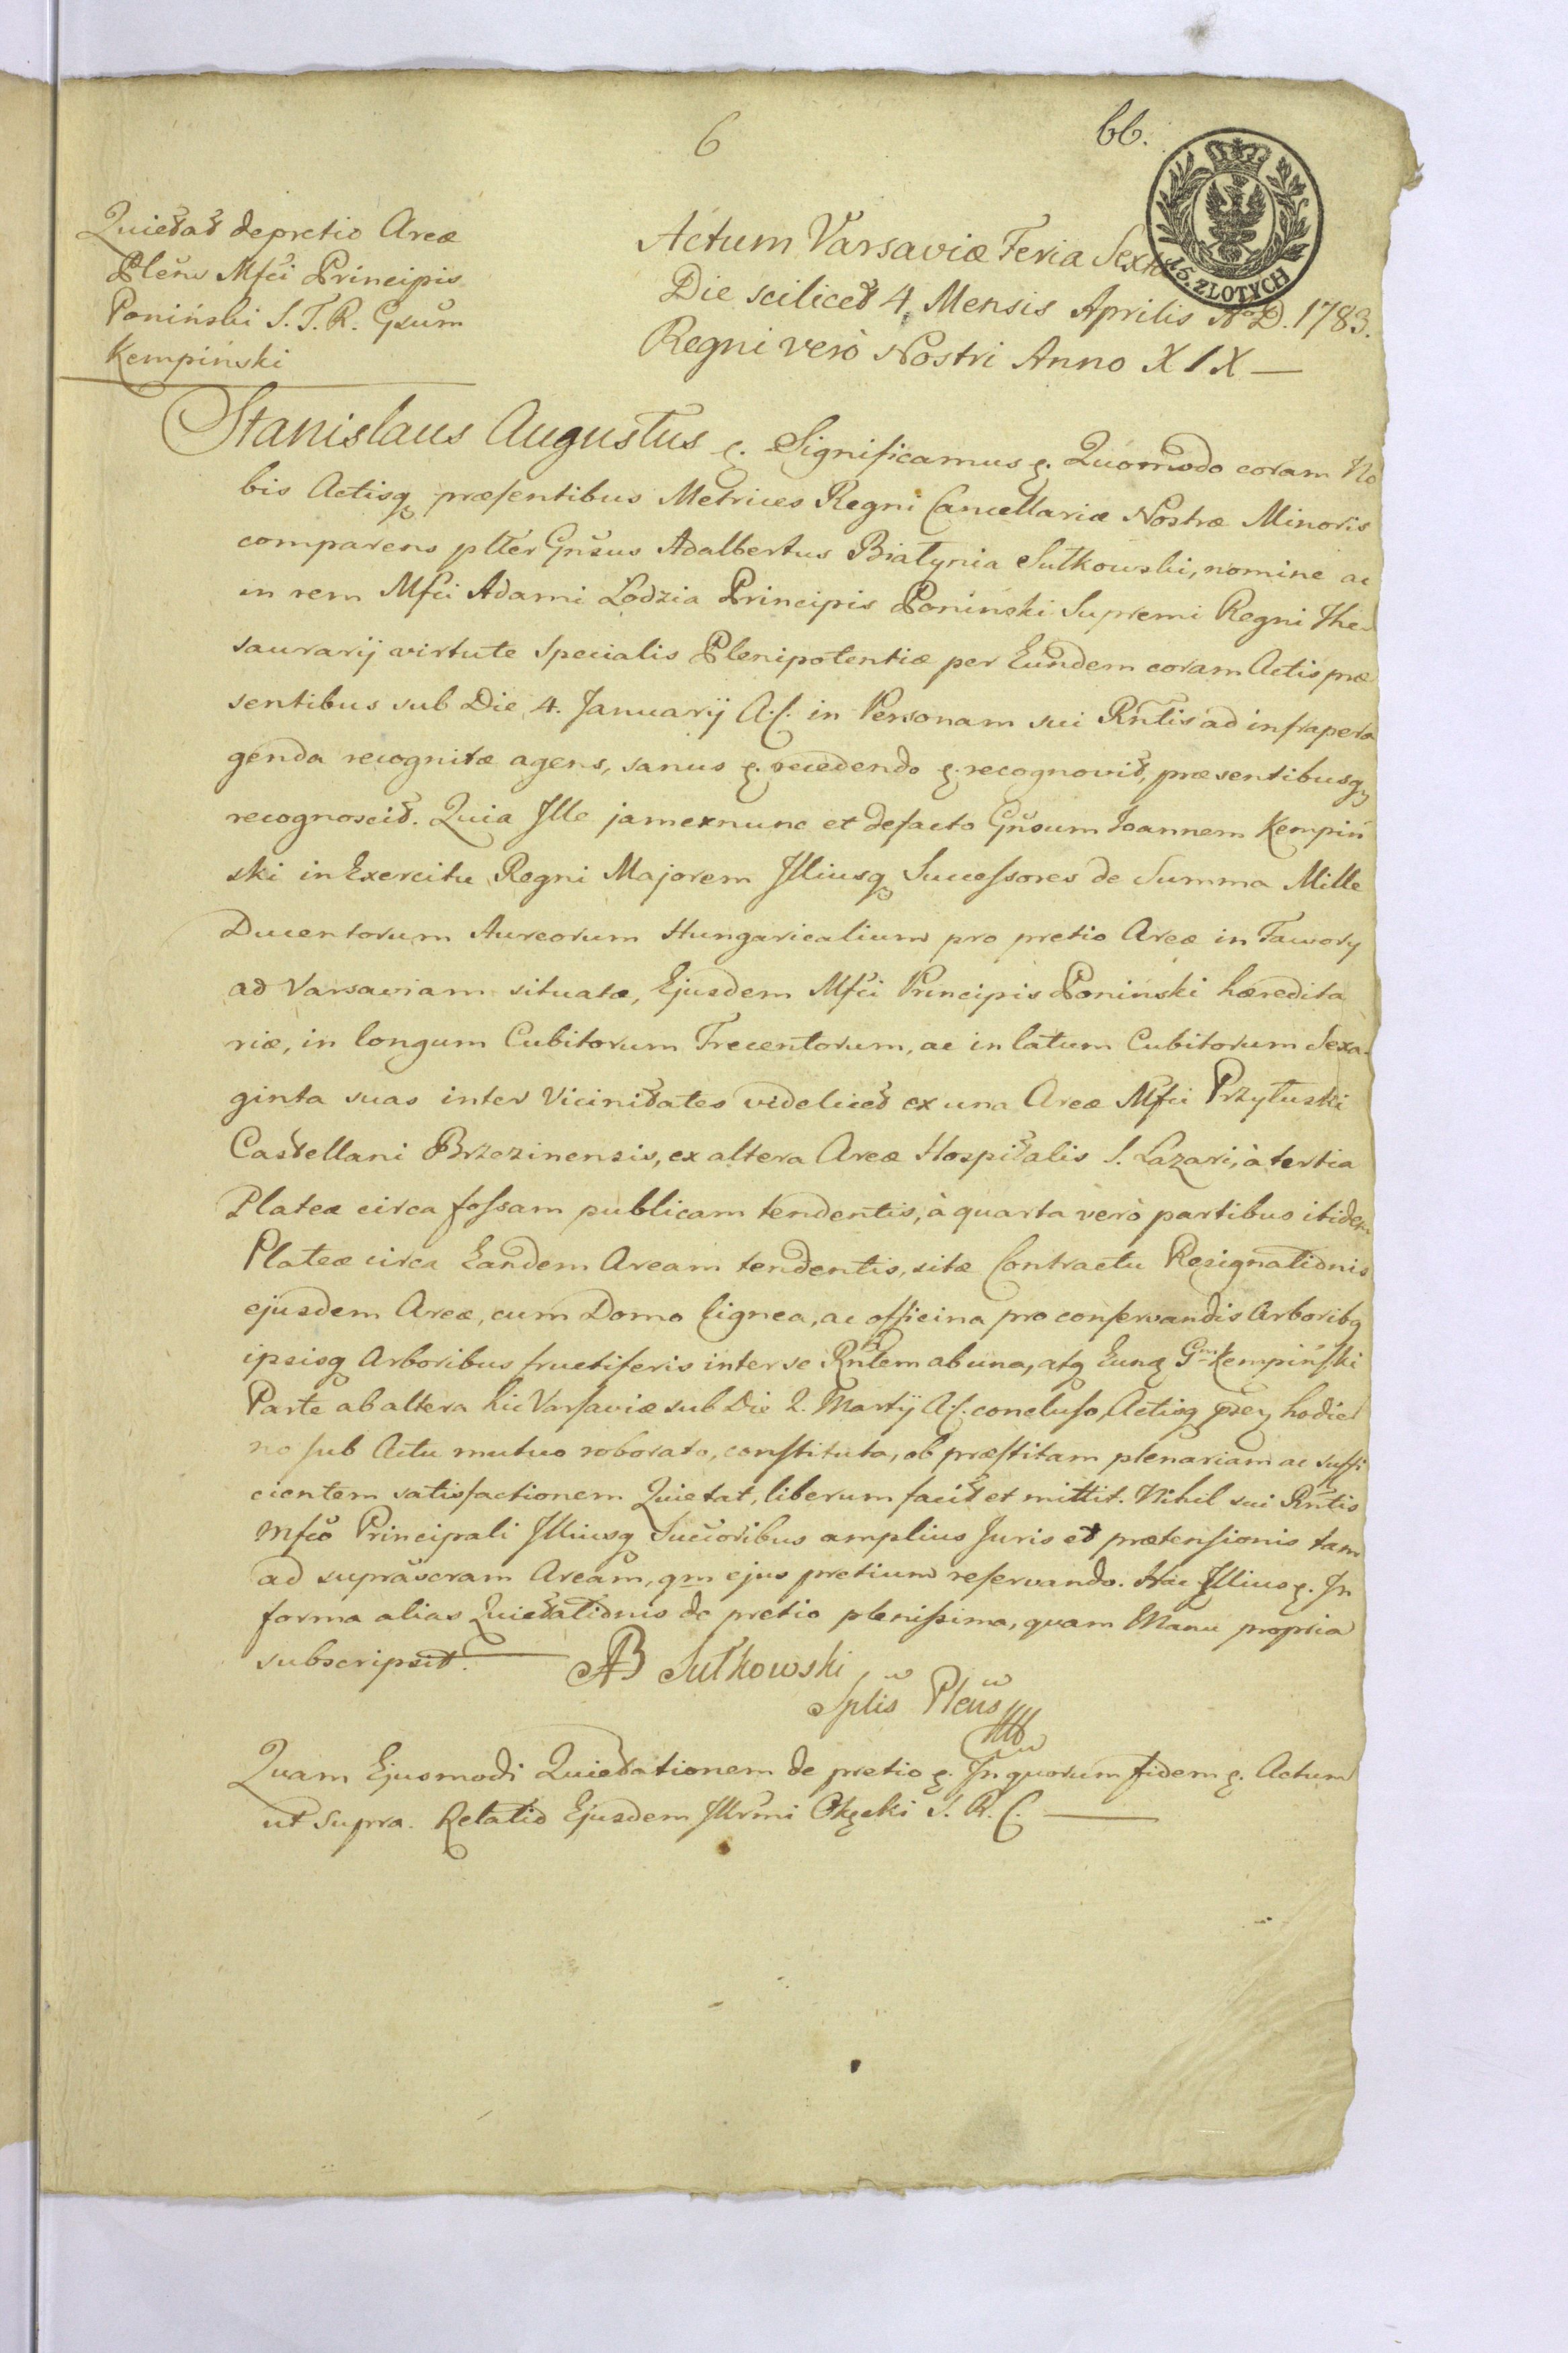 6
66.
15. ZLOTYCH
Quietat de pretio Areæ
Plēnr Mfci Principis
Poniński S. T. R. Gsum
Kempiński
Actum Varsaviæ Feria Sexta
Die scilicet 4. Mensis Aprilis Aº D. 1783.
Regni verò Nostri Anno XIX —
Stanislaus Augustus &. Significamus &. Quomodo coram No
bis Actisq præsentibus Metrices Regni Cancellariæ Nostræ Minoris
comparens plter Gnsus Adalbertus Białynia Sułkowski, nomine ac
in rem Mfci Adami Lodzia Principis Poniński Supremi Regni The
saurarij virtute Specialis Plenipotentiæ per Eundem coram Actis præ
sentibus sub Die 4. Januarij A. c. in Personam sui Rntis ad infra pera
genda recognitæ agens, sanus &. recedendo &. recognovit, præsentibusq
recognoscit. Quia Ille jam exnunc et defacto Gnsum Joannem Kempiń
ski in Exercitu Regni Majorem Illiusq Successores de Summa Mille
Ducentorum Aureorum Hungaricalium pro pretio Areæ in Fawory
ad Varsaviam situatæ, Ejusdem Mfci Principis Poniński hæredita
riæ, in longum Cubitorum Trecentorum, ac in latum Cubitorum Sexa
ginta suas inter Vicinitates videlicet ex una Areæ Mfci Przyłuski
Castellani Brzezinensis, ex altera Areæ Hospitalis S. Lazari, à tertia
Plateæ circa fossam publicam tendentis, à quarta verò partibus itidem
Plateæ circa Eandem Aream tendentis, sitæ Contractu Resignationis
ejusdem Areæ, cum Domo lignea, ac officina pro conservandis Arboribq
ipsisq Arboribus fructiferis inter se Rntem ab una, atq Eunq Gm Kempiński
Parte ab altera hic Varsaviæ sub Die 2. Martij A. c. concluso, Actisq præs hodier
no sub Actu mutuo roborato, constituta, ob præstitam plenariam ac suffi
cientem satisfactionem Quietat, liberum facit et mittit. Nihil sui Rntis
Mfco Principali Illiusq Sucoribus amplius Juris et prætensionis tam
ad suprascram Aream, qm ejus pretium reservando. Hac Illius &. In
forma alias Quietationis de pretio plenissima, quam Manu propria
subscripsit.
AB Sułkowski
Splis Plens
Quam Ejusmodi Quietationem de pretio &. In quorum fidem &. Actum
ut supra. Relatio Ejusdem Illrmi Okęcki S. R. C. —